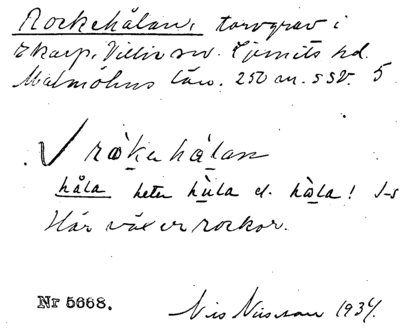 Rockehålan, torvgrav i
Ekarp, Villie sn. Ljunits hd.
Malmöhus län. 250 m. SSV. 5
råkahålan
håla heter hula el. håla!
Här växer rockor.
Nr 5668. Nils Nilsson 1934.